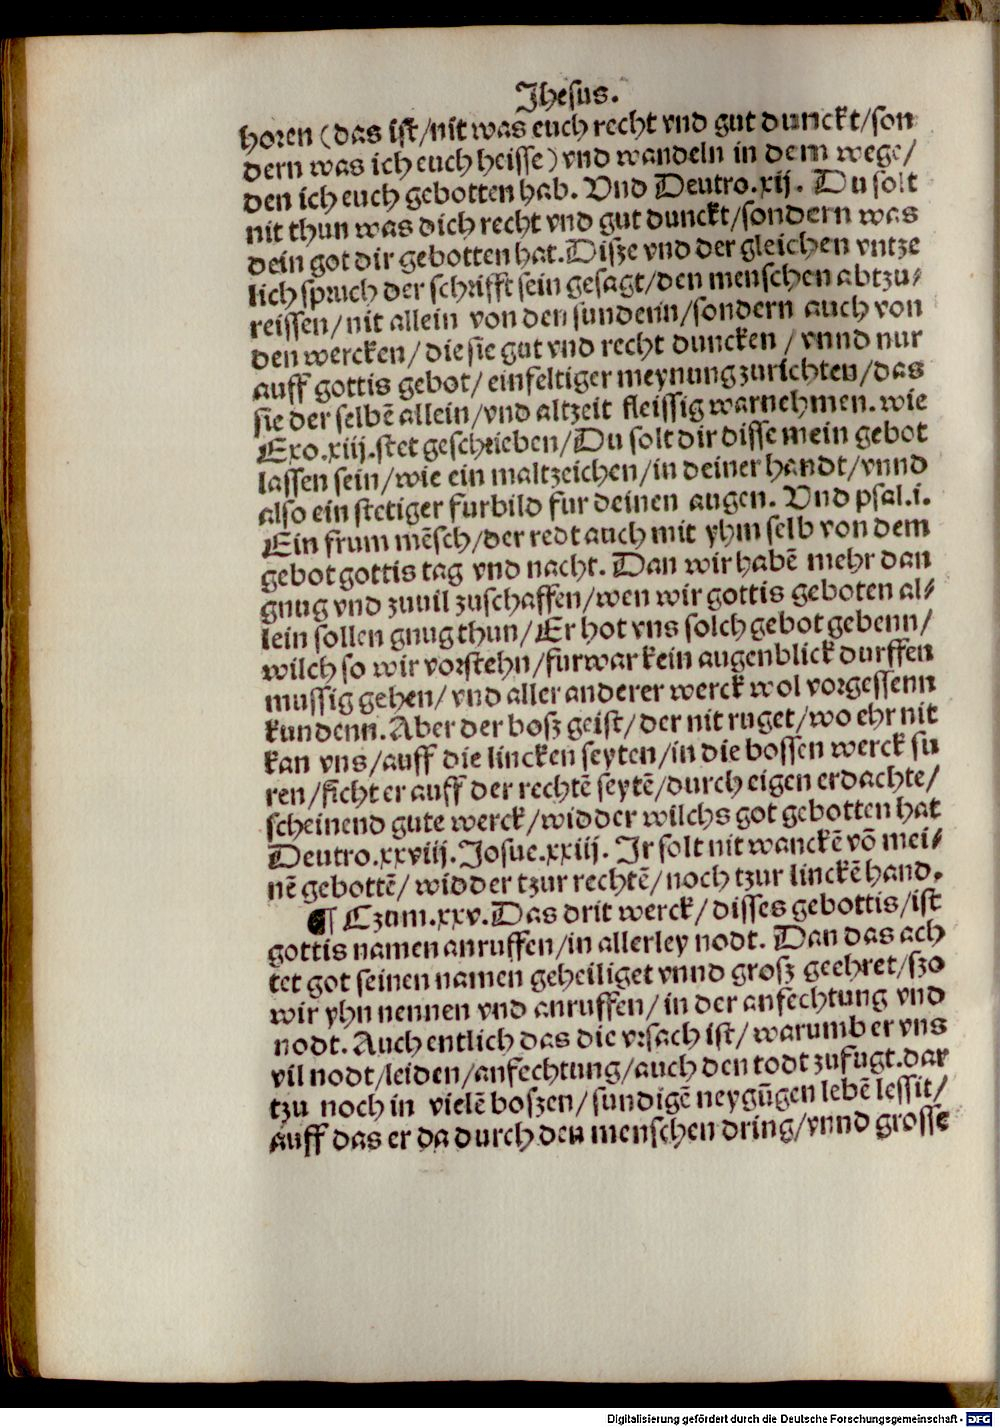 Jhesus.
horen (das ist/nit was euch recht vnd gut dunckt/son
dern was ich euch heisse) vnd wandeln in dem wege/
den ich euch gebotten hab. Vnd Deutro.xij. Du solt
nit thun was dich recht vnd gut dunckt/sondern was
dein got dir gebotten hat. Disze vnd der gleichen vntze
lich spruch der schrifft sein gesagt/den menschen abtzu⸗
reissen/nit allein von den sundenn/sondern auch von
den wercken/die sie gut vnd recht duncken/vnnd nur
auff gottis gebot/einfeltiger meynung zurichten/das
sie der selbē allein/vnd altzeit fleissig warnehmen. wie
Exo.xiij.stet geschrieben/Du solt dir disse mein gebot
lassen sein/wie ein maltzeichen/in deiner handt/vnnd
also ein stetiger furbild fur deinen augen. Vnd psal.i.
Ein frum mēsch/der redt auch mit yhm selb von dem
gebot gottis tag vnd nacht. Dan wir habē mehr dan
gnug vnd zuuil zuschaffen/wen wir gottis geboten al⸗
lein sollen gnug thun/Er hot vns solch gebot gebenn/
wilch so wir vorstehn/furwar kein augenblick durffen
mussig gehen/vnd aller anderer werck wol vorgessenn
kundenn. Aber der bosz geist/der nit ruget/wo ehr nit
kan vns/auff die lincken seyten/in die bossen werck fu
ren/ficht er auff der rechtē seytē/durch eigen erdachte/
scheinend gute werck/widder wilchs got gebotten hat
Deutro.xxviij. Josue.xxiij. Ir solt nit wanckē vō mei⸗
nē gebottē/widder tzur rechtē/noch tzur linckē hand.
¶ Czum.xxv. Das drit werck/disses gebottis/ist
gottis namen anruffen/in allerley nodt. Dan das ach
tet got seinen namen geheiliget vnnd grosz geehret/szo
wir yhn nennen vnd anruffen/in der anfechtung vnd
nodt. Auch entlich das die vrsach ist/warumb er vns
vil nodt/leiden/anfechtung/auch den todt zufugt.dar
tzu noch in vielē boszen/sundigē neygūgen lebē lessit/
auff das er da durch den menschen dring/vnnd grosse
Digitalisierung gefördert durch die Deutsche Forschungsgemeinschaft - DFG